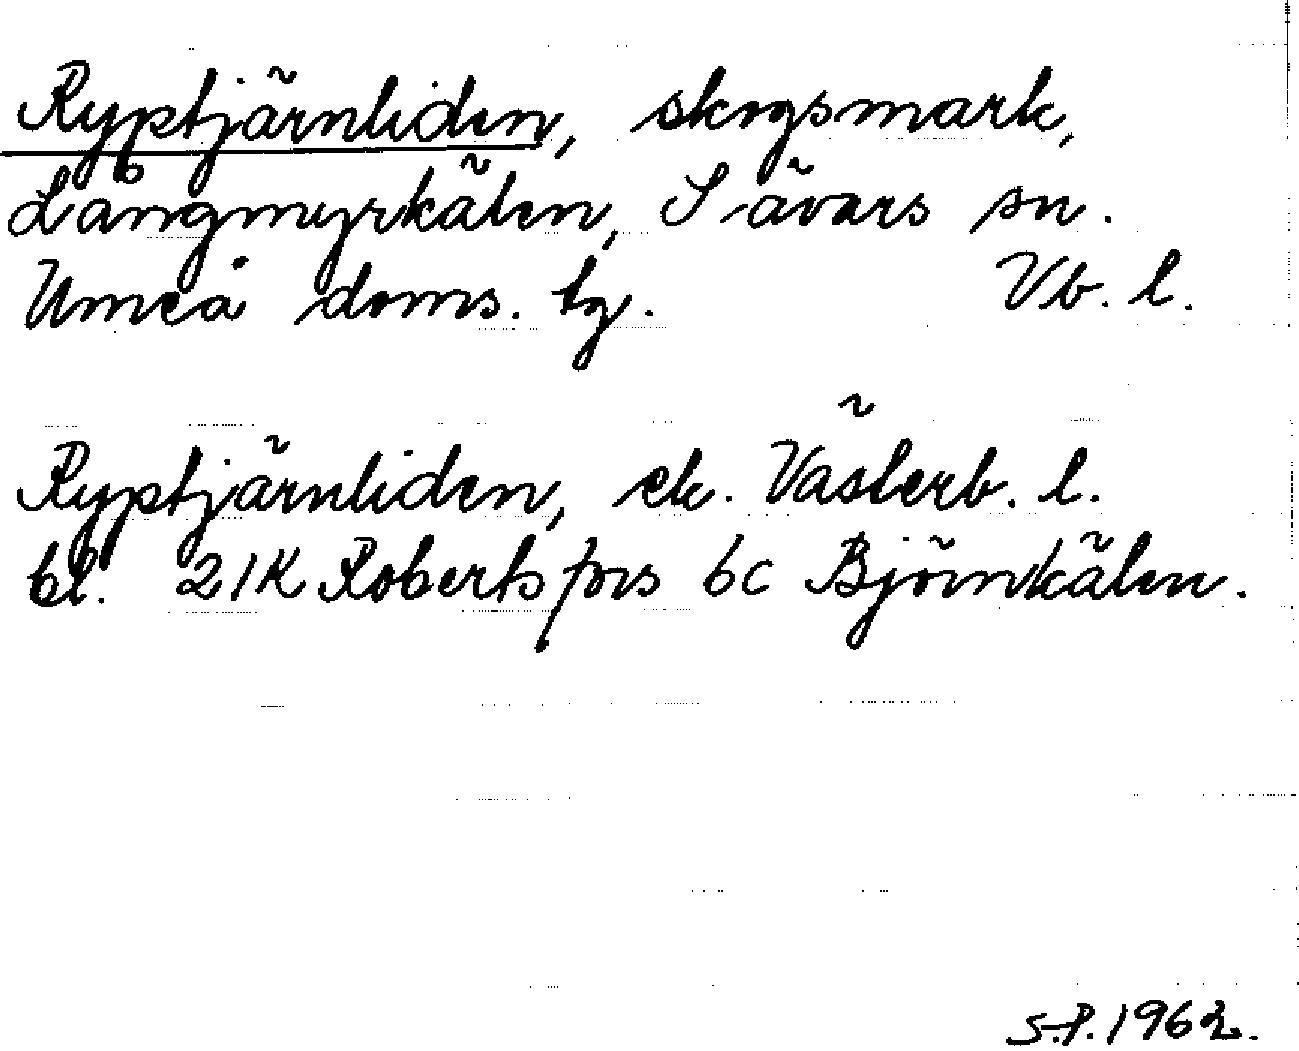 Ryptjärnliden, skogsmark,
Långmyrkälen, Sävars sn.
Umeå doms. tg. Vb. l.
Ryptjärnliden, ek. Västerb. l.
bl. 21K Robertsfors 6c Björnkälen.
S.P. 1962.